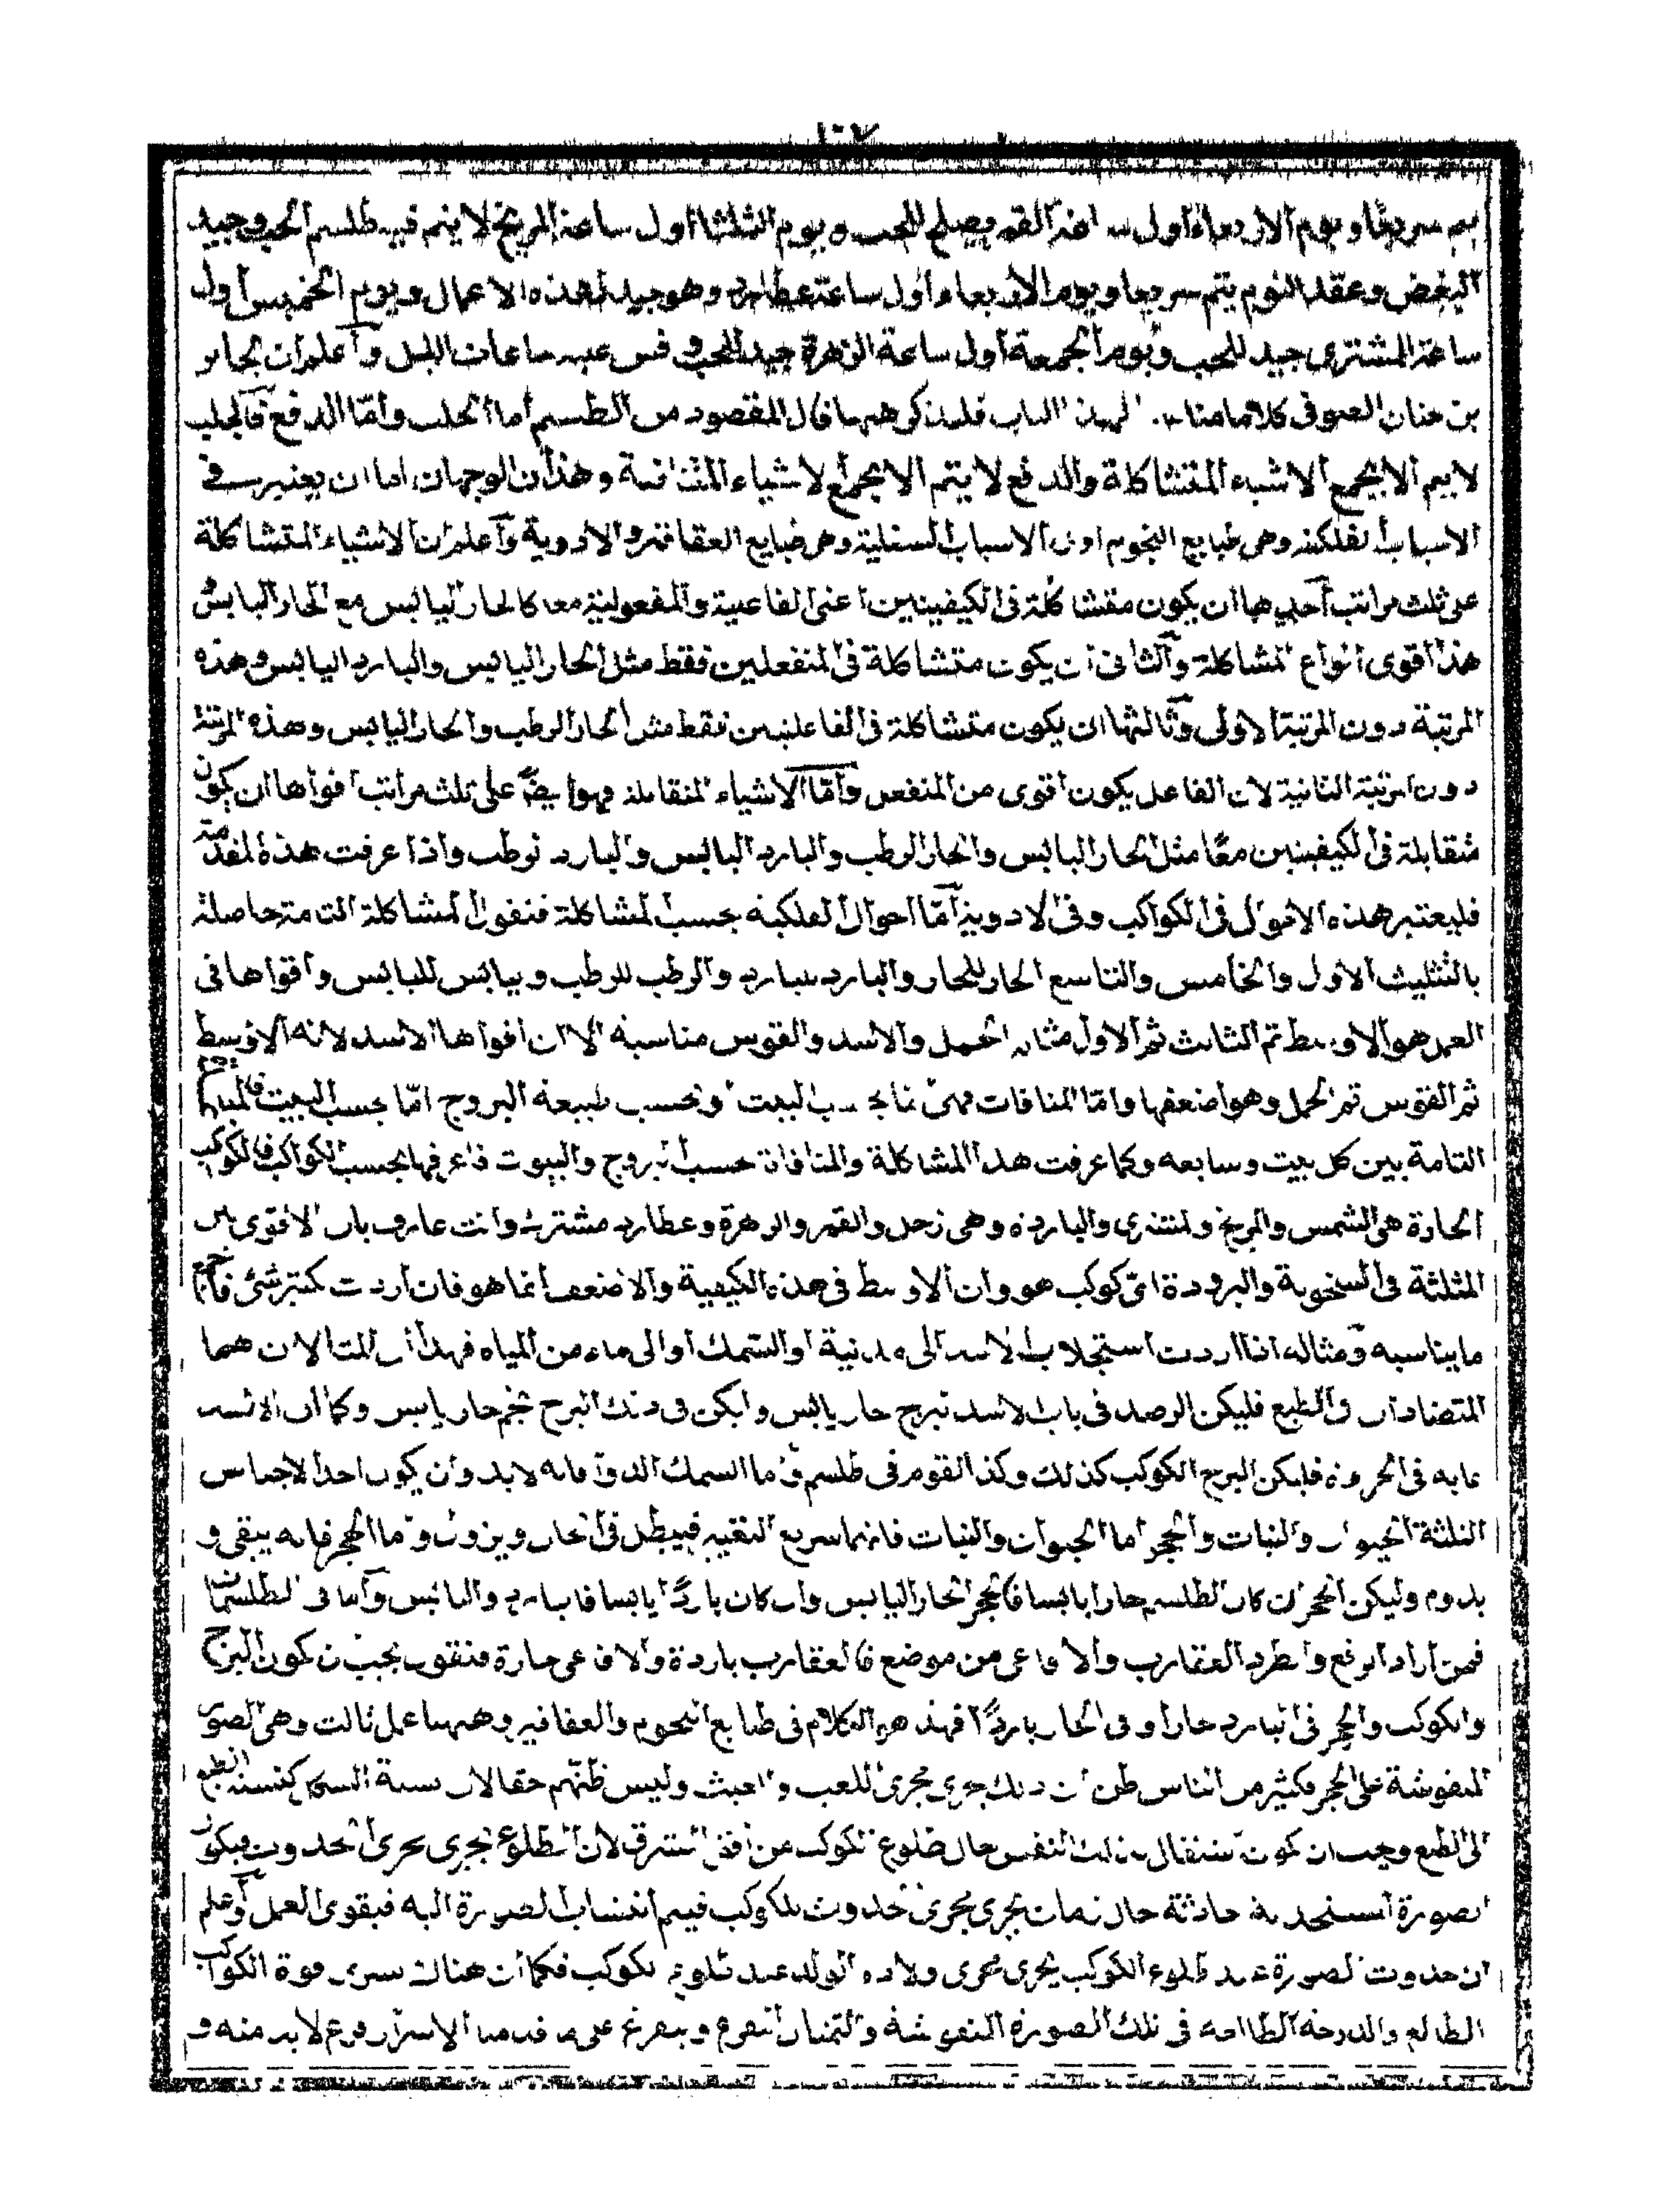 ١٠٧
يتم سريعا ويوم الاربعاء اول ساعة القمر يصلح للحب ويوم الثلثا اول ساعة المريخ لا يتم فيه طلسم الحب وجيد
البغض وعقد النوم يتم سريعا ويوم الاربعاء اول ساعة عطارد وهو جيد لهذه الاعمال ويوم الخميس اول
ساعة المشترى جيد للحب ويوم الجمعة اول ساعة الزهرة جيد للحب وقس عليه ساعات الليل واعلم ان لجابر
بن حنان الصوفى كلاما مناسبا لهذا الباب فلنذكر ههنا قال المقصود من الطلسم اما الجلب واما الدفع فالجلب
لا يتم الا بجمع الاشياء المتشاكلة والدفع لا يتم الا بجمع الاشياء المتنافية وهذان الوجهان اما ان يعتبر فى
الاسباب الفلكية وهى طبايع النجوم او فى الاسباب السفلية وهى طبايع العقاقير والادوية واعلم ان الاشياء المتشاكلة
على ثلث مراتب احديها ان يكون متشاكلة فى الكيفيتين اعنى الفاعلية والمفعولية معا كالحار اليابس مع الحار اليابس
هذا اقوى انواع المشاكلة والثانى ان يكون متشاكلة فى المنفعلين فقط مثل الحار اليابس والبارد اليابس وهذه
المرتبة دون المرتبة الاولى وثالثها ان يكون متشاكلة فى الفاعلين فقط مثل الحار الرطب والحار اليابس وهذه المرتبة
دون المرتبة الثانية لان الفاعل يكون اقوى من المنفعل واما الاشياء المتقابلة فهو ايضا على ثلث مراتب اقواها ان يكون
متقابلة فى الكيفيتين معا مثل الحار اليابس والحار الرطب والبارد اليابس والبارد الرطب واذا عرفت هذه المقدمة
فليعتبر هذه الاقوال فى الكواكب وفى الادوية اما احوال الفلكية بحسب المشاكلة فنقول المشاكلة التامة حاصلة
بالتثليث الاول والخامس والتاسع الحار للحار والبارد للبارد والرطب للرطب واليابس لليابس واقواها فى
العمل هو الاوسط ثم الثالث ثم الاول مثاله الحمل والاسد والقوس مناسبة الا ان اقواها الاسد لانه الاوسط
ثم القوس ثم الحمل وهو اضعفها واما المنافات فهى اما بحسب البيت او بحسب طبيعة البروج اما بحسب البيت
التامة بين كل بيت وسابعه وكما عرفت هذا المشاكلة والمنافاة بحسب البروج والبيوت فاعرفها بحسب الكواكب فالكواكب
الحارة هى الشمس والمريخ والمشترى والباردة وهى زحل والقمر والزهرة وعطارد مشترك وانت عارف بان الاقوى من
المثلثة فى السخونة والبرودة اى كوكب هو وان الاوسط فى هذه الكيفية والاضعف ايما هو فان اردت تكثير شئ فاجمع
ما يناسبه ومثاله اذا اردت استجلاب الاسد الى مدينة او السمك او الى ماء من المياه فهذا المثالان هما
المتضادان فى الطبع فليكن الرصد فى باب الاسد ببرج حار يابس وليكن فى ذلك البرج نجم حار يابس وكما ان الاسد
غاية فى الحرارة فليكن البرج الكوكب كذلك وكذا القوم فى طلسم واما السمك فانه لا بد وان يكون احد الاجناس
الثلثة الحيوان والنبات والحجر اما الحيوان والنبات فانهما سريع التغيير فيبطل فى الحال ويزول واما الحجر فانه يبقى و
يدوم وليكن الحجر ان كان الطلسم حارا يابسا فالحجر الحار اليابس وان كان باردا يابسا فالبارد واليابس واما فى الطلسمات
فمن اراد الدفع والطرد العقارب والافاعى من موضع فالعقارب باردة والافاعى حارة فنقول يجب ان يكون البرج
والكوكب والحجر فى البارد حارا وفى الحار باردا فهذا هو الكلام فى طبايع النجوم والعقاقير وههنا عمل ثالث وهى الصور
المنقوشة على الحجر فكثير من الناس ظن ان ذلك جرى مجرى اللعب والعبث وليس ظنهم حقا لان نسبة الشئ كنسبة الطبع
الى الطبع وجب ان يكون بذلك النقش حال طلوع الكوكب عن افق المشرق لان الطلوع يجرى مجرى الحدوث فيكون
الصورة المستحدثة حادثة حال زمان يجرى مجرى حدوث الكوكب فيتم انتساب الصورة اليه فيقوى العمل واعلم
ان حدوث الصورة عند طلوع الكوكب يجرى مجرى ولادة الولد عند طلوع الكوكب فكما ان هناك يسرى قوة الكواكب
الطالع والدرجة الطالعة فى تلك الصورة المنقوشة والتمثال ويتفرع على ما قدمنا الاسرار فرع لا بد منه و